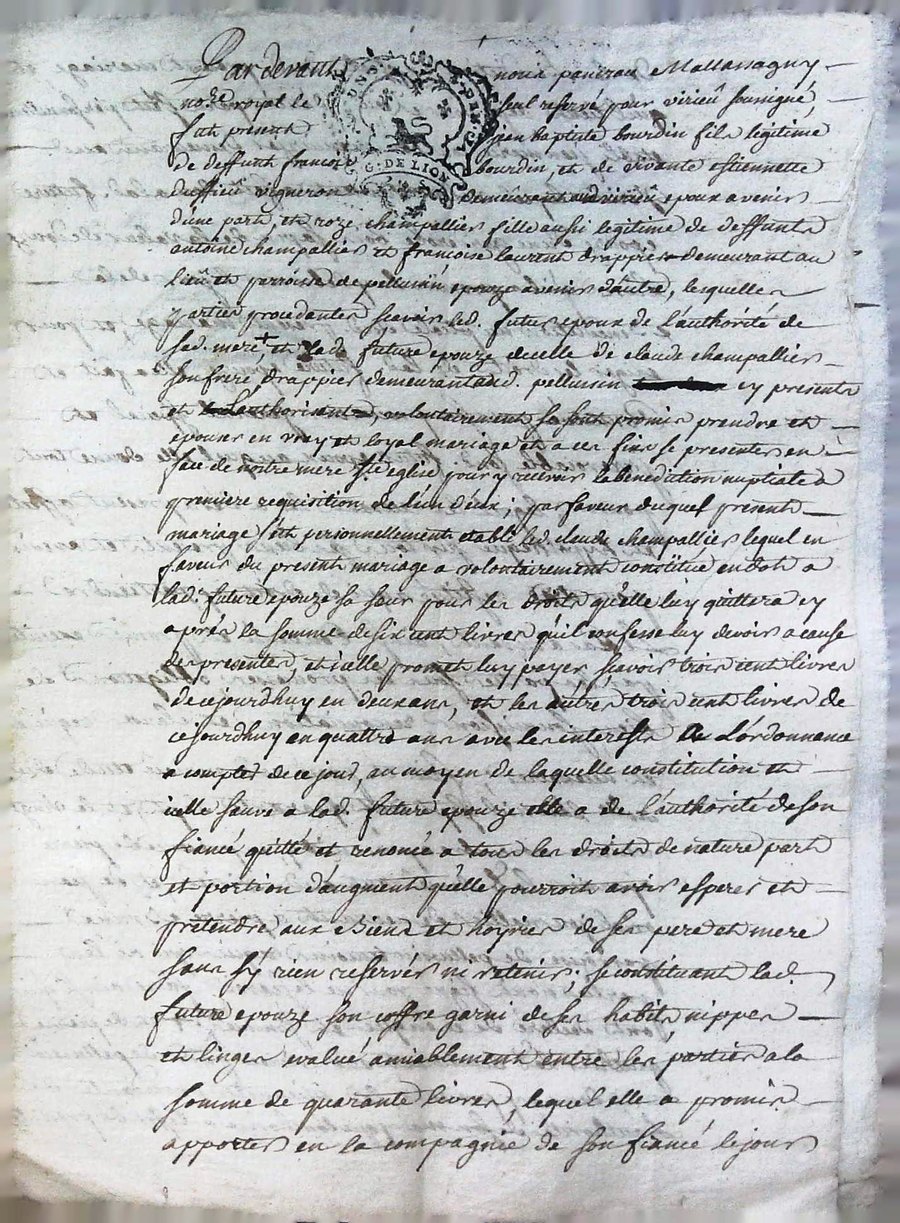 Par devant nous panczau Mallassagny
no.re royal le seul reservé pour virieû sousigné,
fut present jean baptiste bourdin fils legitime
de deffunt francois bourdin, et de vivante estiennette
duffieû vigneron demeurant aud virieû epoux avenir
d'une part, et roze champallier fille aussi legitime de deffunts
antoine champallier et francoise laurent drappier demeurant au
lieû et parroisse de pellussin epouze avenir d'autre, lesquelles
parties procedantes scavoir led. futur epoux de l'authorité de
sad. mere + et lad. future epouze de celle de claude champallier
son frere drappier demeurant aud. pellussin cy presente
et l'authorisant, volontairement se sont promis prendre et
epouser en vray et loyal mariage et a ces fins se presenter en
face de nottre mere S.te eglise pour y recevoir la benediction nuptiale a
premiere requisition de l'un d'eux; par faveur duquel present
mariage s'est personnellement etabli led. claude champallier lequel en
faveur du present mariage a volontairement constitué en dot a
lad. future epouze sa sœur pour les droits qu'elle luy quittera cy
aprés la somme de six cent livres qu'il confesse luy devoir a cause
des presentes, et icelle promet luy payer, scavoir trois cent livres
de cejourdhuy en deux ans, et les autres trois cent livres de
cejourdhuy en quattre ans avec les interests de l'ordonnance
a compter de ce jour, au moyen de laquelle constitution et
icelle sauve a lad. future epouze elle a de l'authorité de son
fiancé quitté et renoncé a tous les droits de nature part
et portion d'augment qu'elle pourroit avoir esperer et
pretendre aux biens et hoyries de ses pere et mere
sans s'y rien reserver ni retenir; se constituant lad.
future epouze son coffre garni de ses habits nippes
et linges evalué amiablement entre les parties a la
somme de quarante livres, lequel elle a promis
apporter en la compagnie de son fiancé le jour
G. DE LION